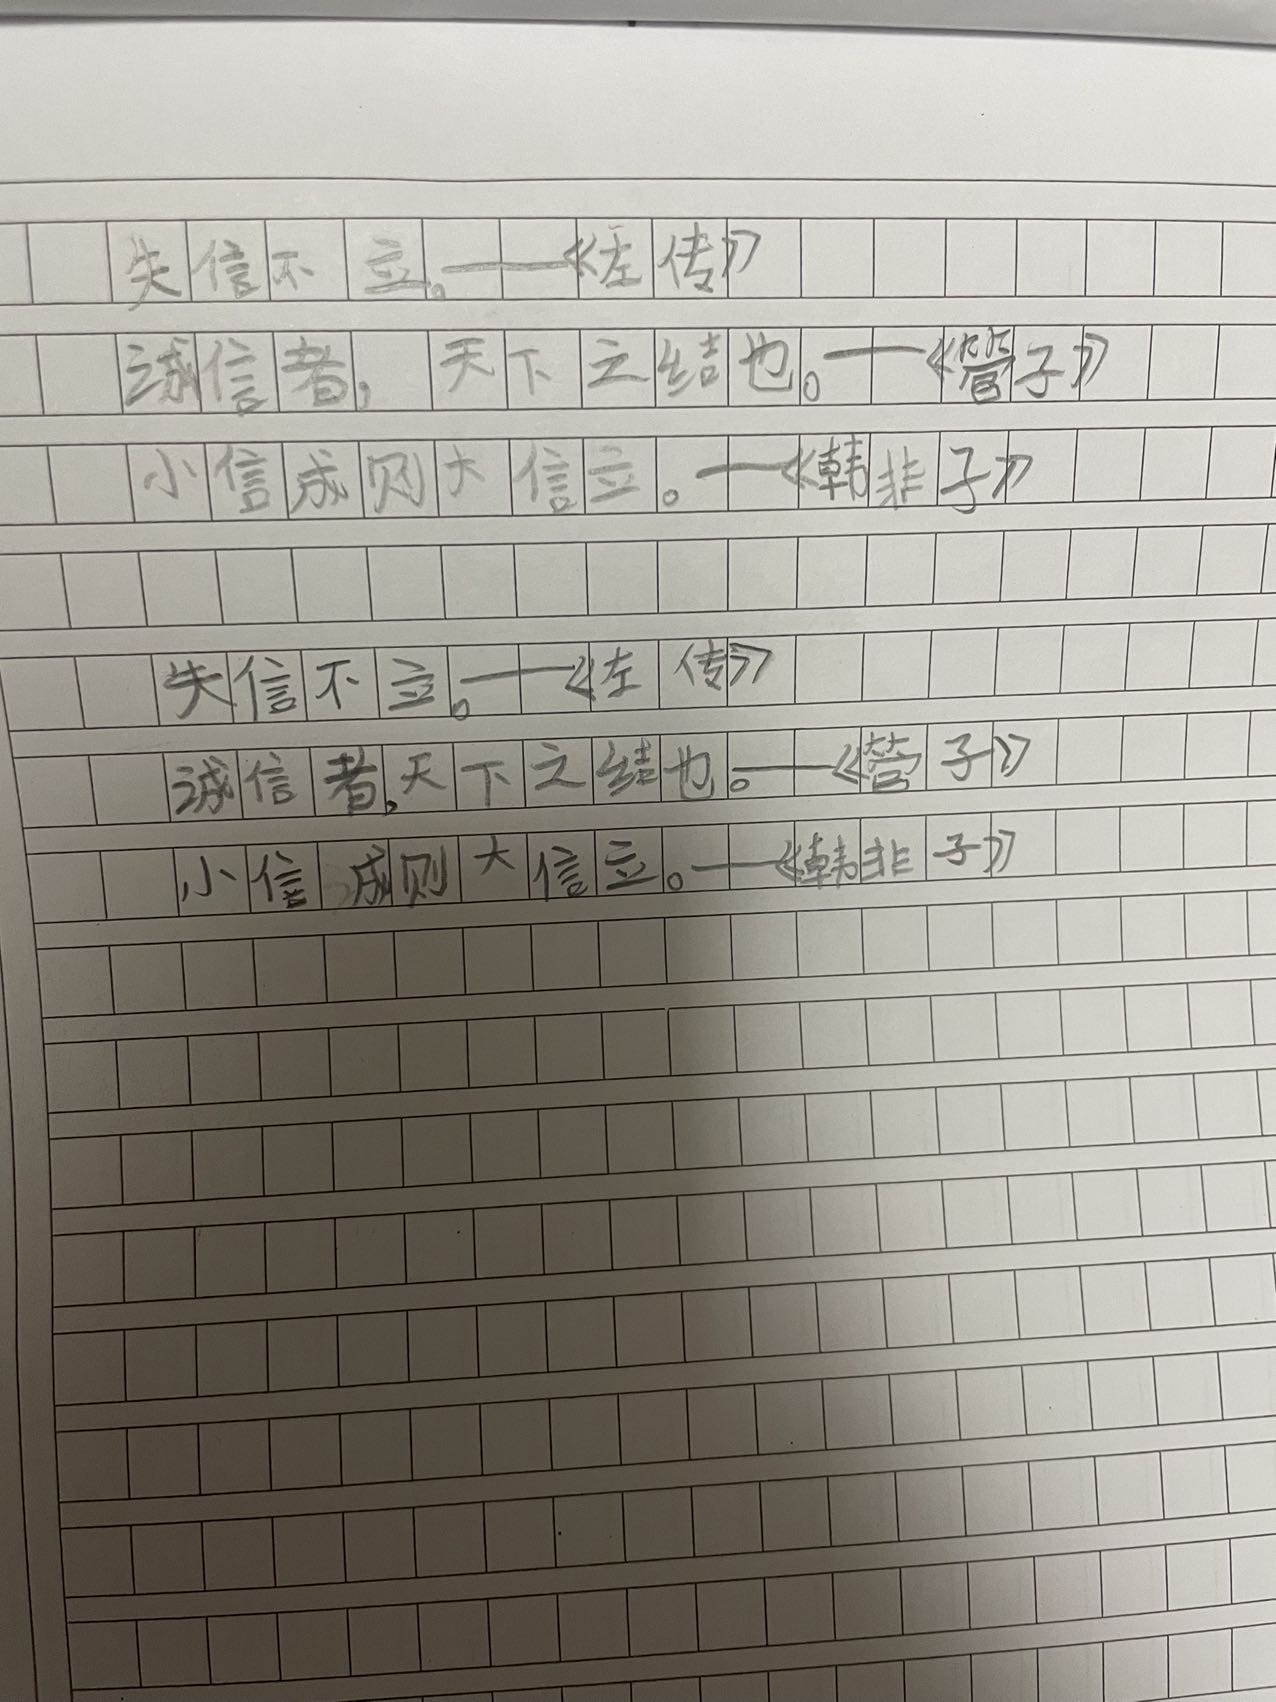 失信不立。——《左传》
诚信者,天下之结也。——《管子》
小信成则大信立。——《韩非子》
失信不立。——《左传》
诚信者,天下之结也。——《管子》
小信成则大信立。——《韩非子》